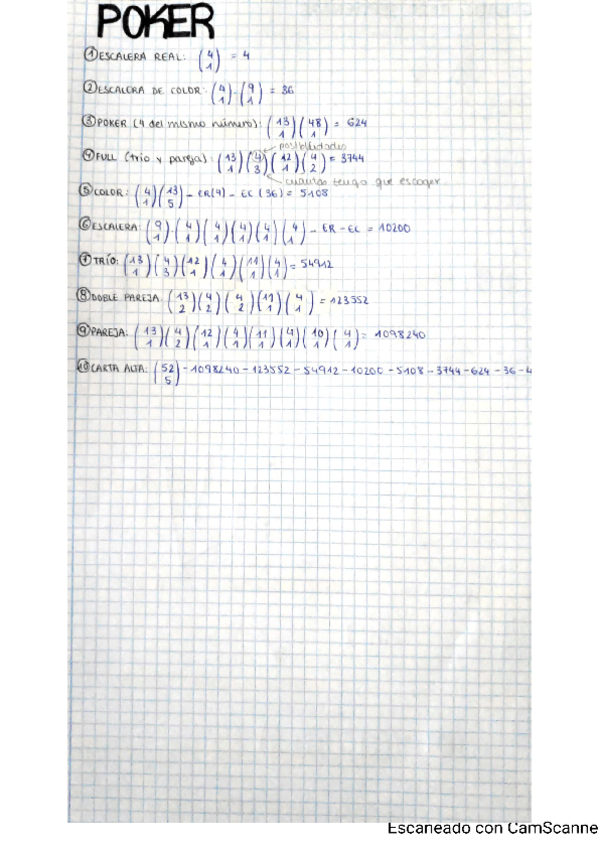 POKER
① ESCALERA REAL: (4 1) = 4
② ESCALERA DE COLOR: (4 1)·(9 1) = 36
③ POKER (4 del mismo número): (13 1)(48 1) = 624
posibilidades
④ FULL (trío y pareja): (13 1)(4 3)(12 1)(4 2) = 3744
cuántas tengo que escoger
⑤ COLOR: (4 1)(13 5) - ER(4) - EC(36) = 5108
⑥ ESCALERA: (9 1)·(4 1)(4 1)(4 1)(4 1)(4 1) - ER - EC = 10200
⑦ TRÍO: (13 1)(4 3)(12 1)(4 1)(11 1)(4 1) = 54912
⑧ DOBLE PAREJA: (13 2)(4 2)(4 2)(11 1)(4 1) = 123552
⑨ PAREJA: (13 1)(4 2)(12 1)(4 1)(11 1)(4 1)(10 1)(4 1) = 1098240
⑩ CARTA ALTA: (52 5) - 1098240 - 123552 - 54912 - 10200 - 5108 - 3744 - 624 - 36 - 4
Escaneado con CamScanne